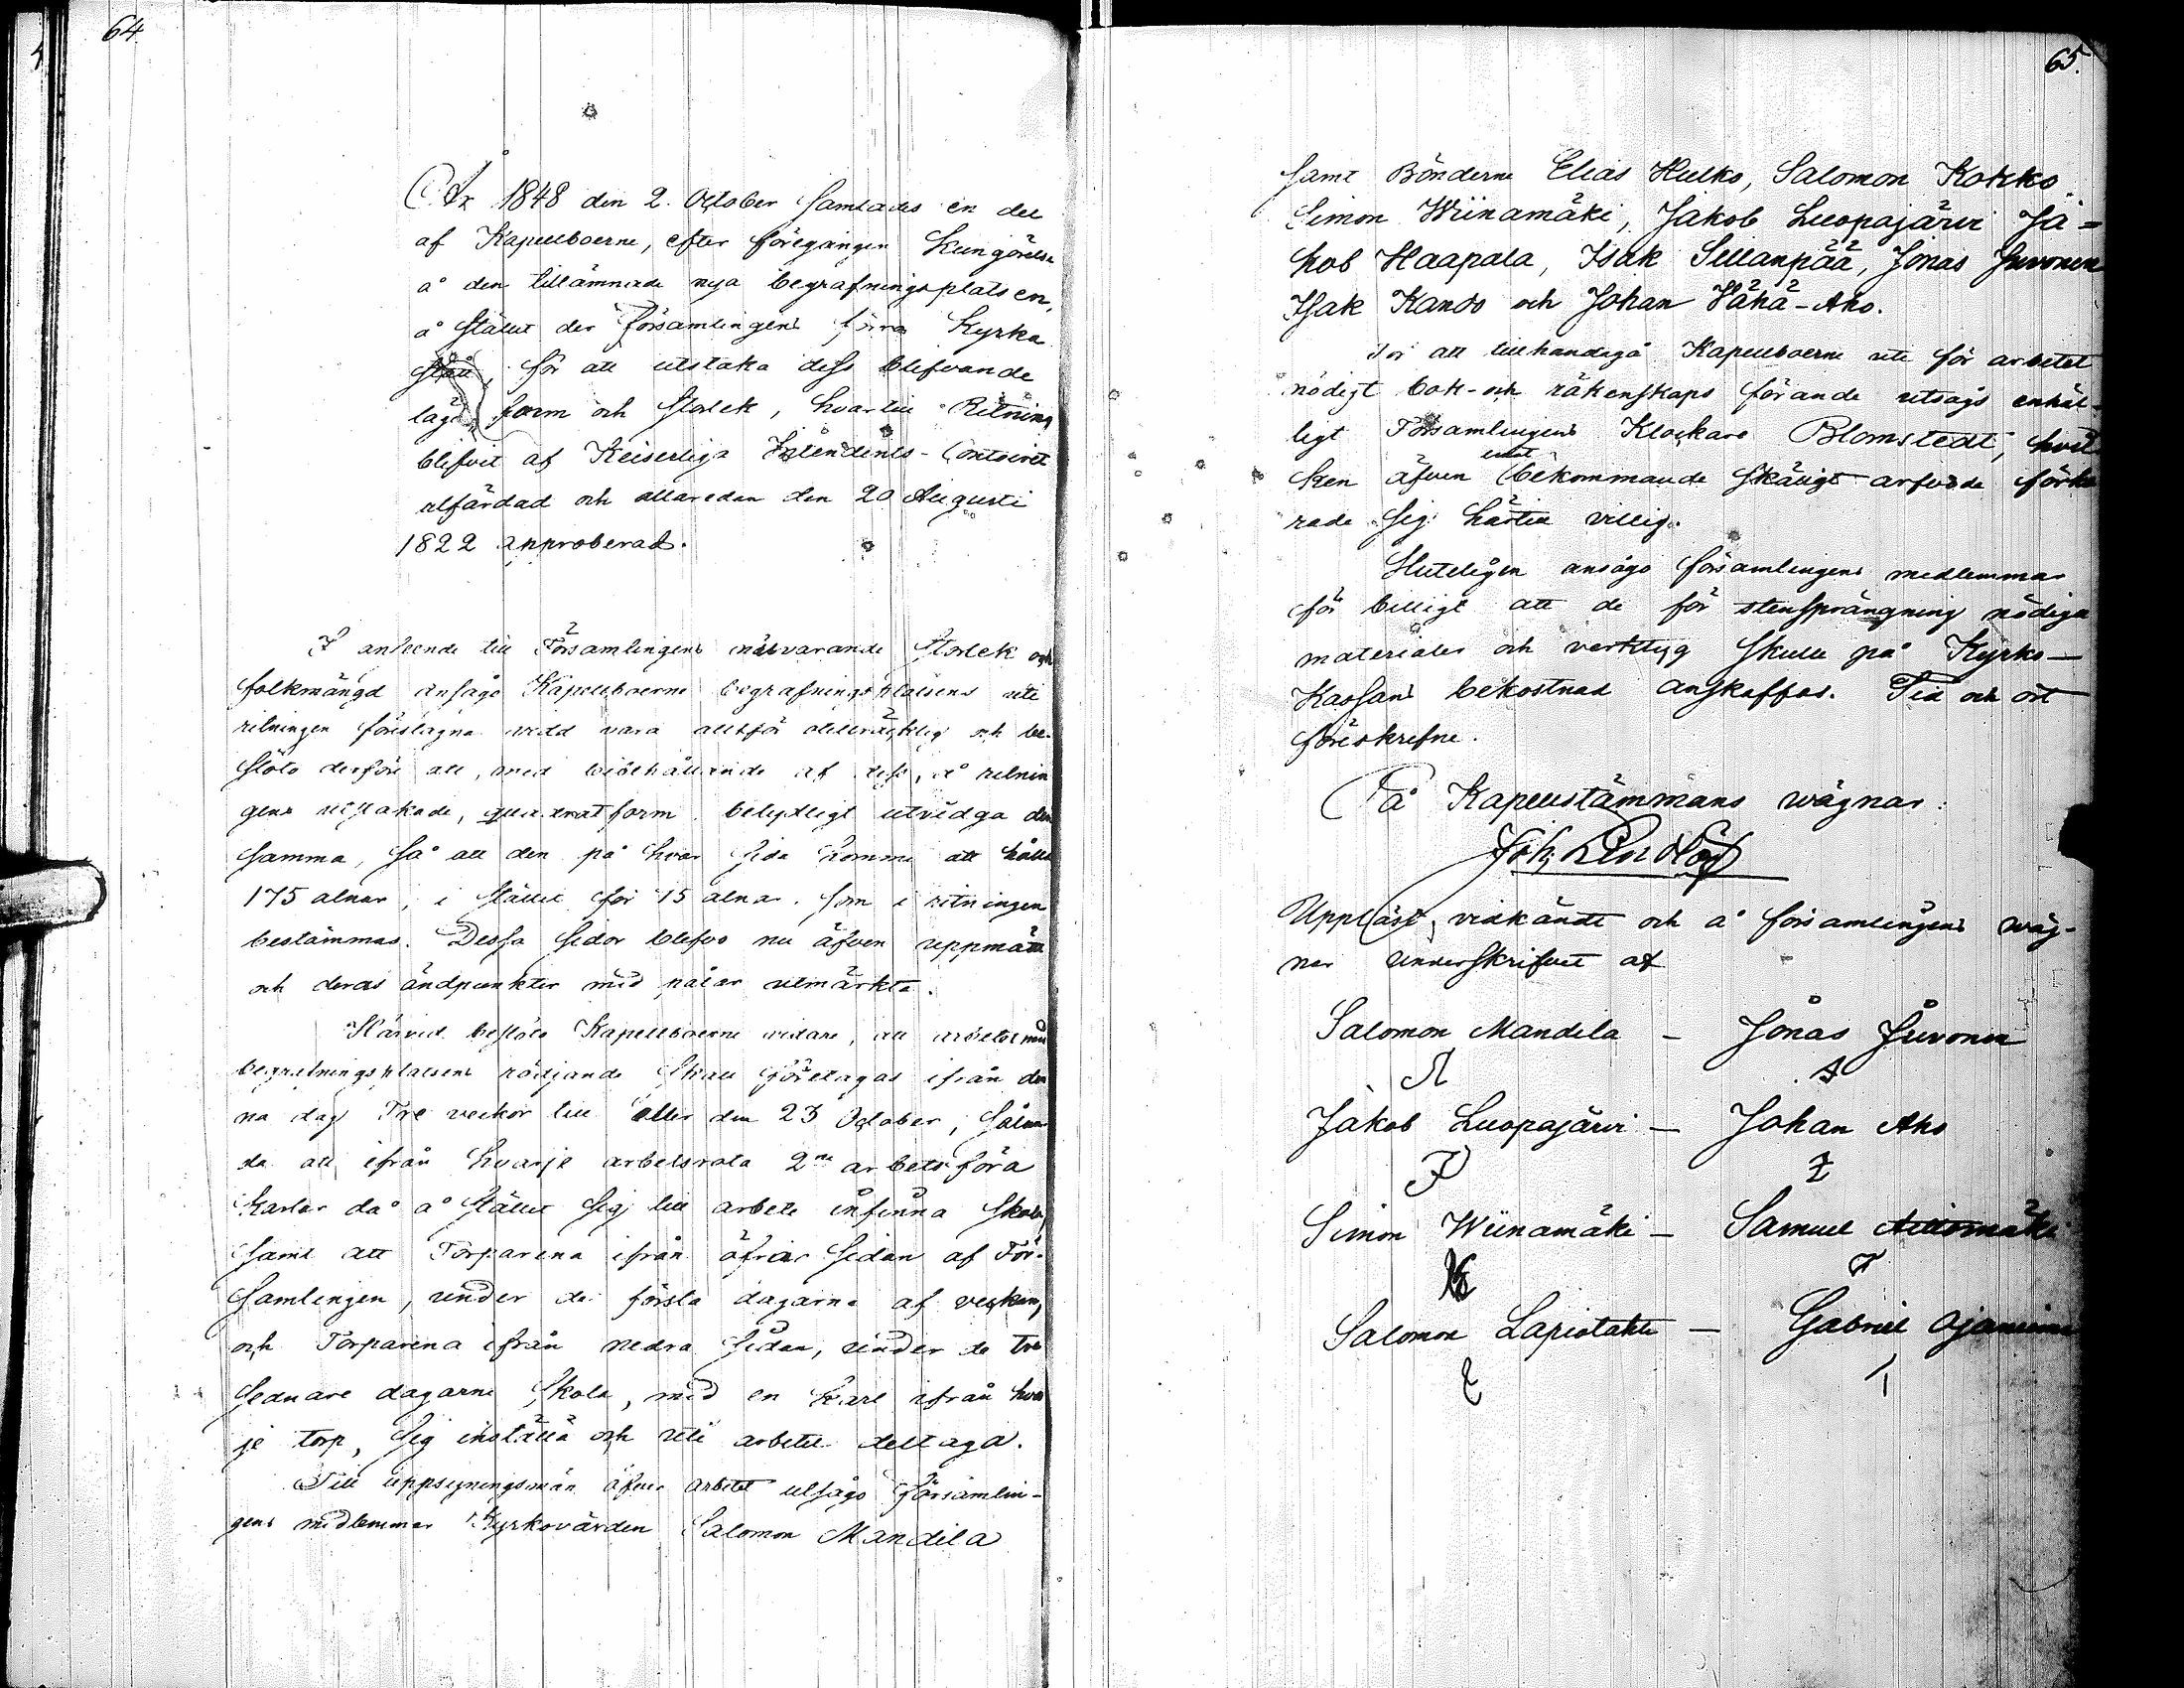 64.
År 1848 den 2. October Samlades en del
af Kapellboerne, efter föregången Kungörelse
å den tillämnade nya begrafningsplatsen,
å stället der församlingens förra Kyrka
stått, för att utstaka dess blifvande
läge, form och storlek, hvartill Ritning
blifvit af Keiserliga Intendents-Contoiret
utfärdad och allaredan den 20 Augusti
1822 approberad.
I anseende till Församlingens närvarande storlek och
folkmängd ansågo Kapellboerne begrafningsplatsens uti
ritningen föreslagna vidd vara alltför otillräcklig och be-
slöto derföre att, med bibehållande af dess, å ritnin
gens utstakade, quadrat form betydligt utvidga den
samma, så att den på hvar sida komme att hålla
175 alnar, i stället för 75 alnar, som i ritningen
bestämmas. Dessa sidor blefvo nu äfven uppmätta
och deras ändpunkter med pålar utmärkta.
Härvid beslöto Kapellboerne vidare, att arbetet med
begrafningsplatsens rödjande skall företagas ifrån den
na dag Tre veckor till eller den 23 October, sålun
da att ifrån hvarje arbetsrota 2ne arbetsföra
Karlar då å stället sig till arbete infinna skola,
samt att Torparena ifrån öfra sidan af För-
samlingen, under de första dagarne af veckan,
och Torparena ifrån nedra sidan, under de tre
sednare dagarne skola, med en Karl ifrån hvar
je torp, sig inställa och uti arbetet deltaga.
Till uppsyningsmän öfver arbetet utsågo församlin-
gens medlemmar Kyrkovärden Salomon Mandila
65.
samt Bönderne Elias Hulko, Salomon Kokko
Simon Wiinamäki, Jakob Luopajärvi Ja-
kob Haapala, Isak Sillanpää, Jonas Juvonen
Isak Kando och Johan Vähä-Aho.
För att tillhandagå Kapellboerne uti för arbetet
nödigt bok- och räkenskaps förande utsågs enhäl-
ligt Församlingens Klockare Blomstedt, hvil
ken äfven emot bekommande skäligt arfvode förkla
rade sig härtill villig.
Sluteligen ansågo församlingens medlemmar
för billigt att de för stensprängning nödiga
materialer och verktyg skulle på Kyrko-
Kassans bekostnad anskaffas. Tid och ort
föreskrefne.
På Kapellstämmans vägnar:
Joh,
Uppläst, vidkändt och å församlingens väg-
nar underskrifvit af
Salomon Mandila - Jonas Juvonen
Jakob Luopajärvi - Johan Aho
Simon Wiinamäki - Samuel
Salomon Lapiolahti - Gabriel